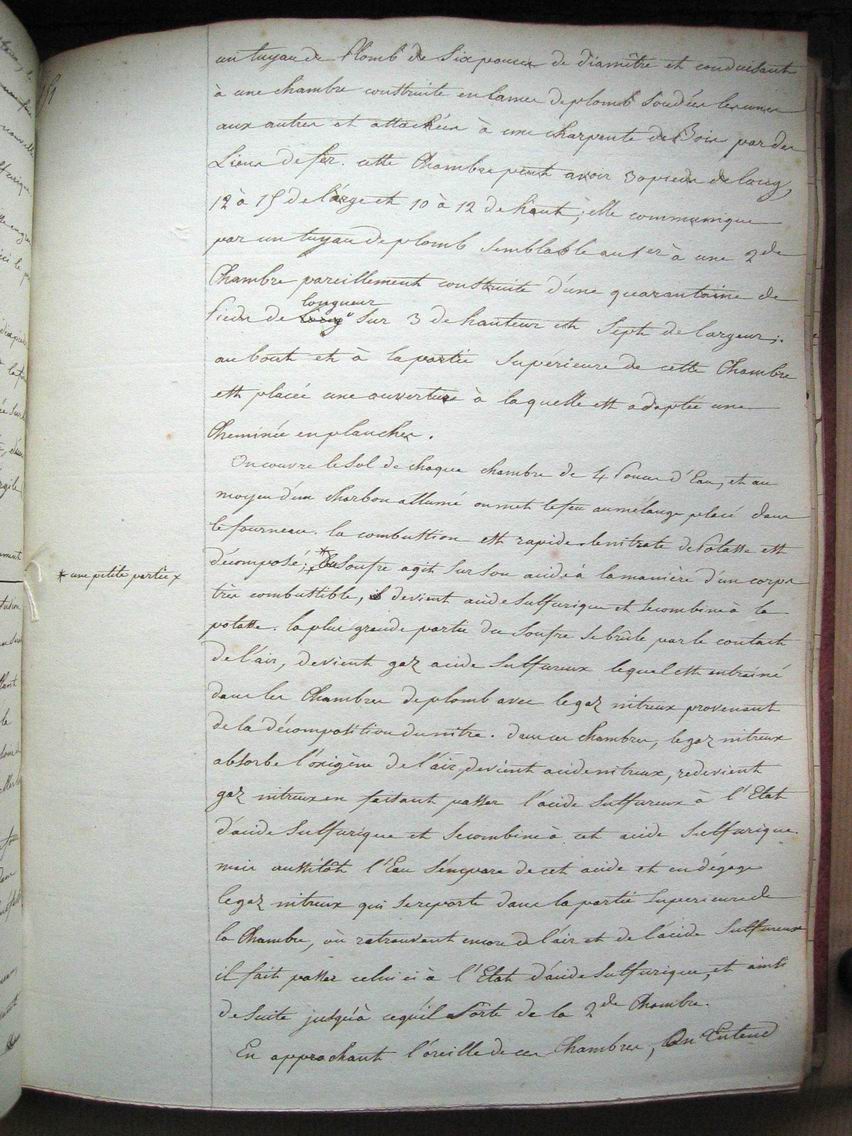 un tuyau de Plomb de Six pouces de diamètre et conduisant
à une chambre construite en lames de plomb soudées les unes
aux autres et attachées à une charpente de Bois par des
Liens de fer. cette Chambre peut avoir 30 pieds de long,
12 à 15 de large et 10 à 12 de haut; elle communique
par un tuyau de plomb semblable au 1er à une 2de
Chambre pareillement construite d'une quarantaine de
longueur
Pieds de Long" sur 3 de hauteur et Sept de largeur;
au bout et à la partie Supérieure de cette Chambre
est placée une ouverture à laquelle est adaptée une
Cheminée en planches.
On couvre le Sol de chaque chambre de 4 Pouces d'Eau, et au
moyen d'un Charbon allumé on met le feu au mélange placé dans
le fourneau. la combustion est rapide. le nitrate de Potasse est
décomposé; * du Soufre agit sur son acide à la manière d'un corps
* une petite partie x
très combustible, il devient acide Sulfurique et se combine à la
potasse. la plus grande partie du Soufre se brûle par le contact
de l'air, devient gaz acide Sulfureux lequel est entrainé
dans les Chambres de plomb avec le gaz nitreux provenant
de la décomposition du nitre. dans ces chambres, le gaz nitreux
absorbe l'oxigène de l'air, devient acide nitreux, redevient
gaz nitreux en faisant passer l'acide Sulfureux à l'Etat
d'acide Sulfurique et se combine à cet acide Sulfurique.
mais aussitôt l'Eau s'empare de cet acide et en dégage
le gaz nitreux qui se reporte dans la partie Superieure de
la Chambre, où retrouvant encore de l'air et de l'acide Sulfureux
il fait passer celui ci à l'Etat d'acide Sulfurique, et ainsi
de suite jusqu'à ce qu'il Sorte de la 2de Chambre.
En approchant l'oreille de ces Chambres, On Entend